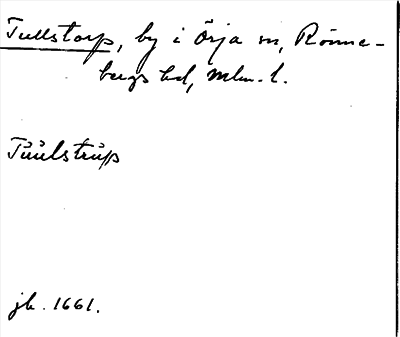 Tullstorp, by i Örja sn, Rönne-
bergs hd, Mlm. l.
Tüülstrüp
jb. 1661.